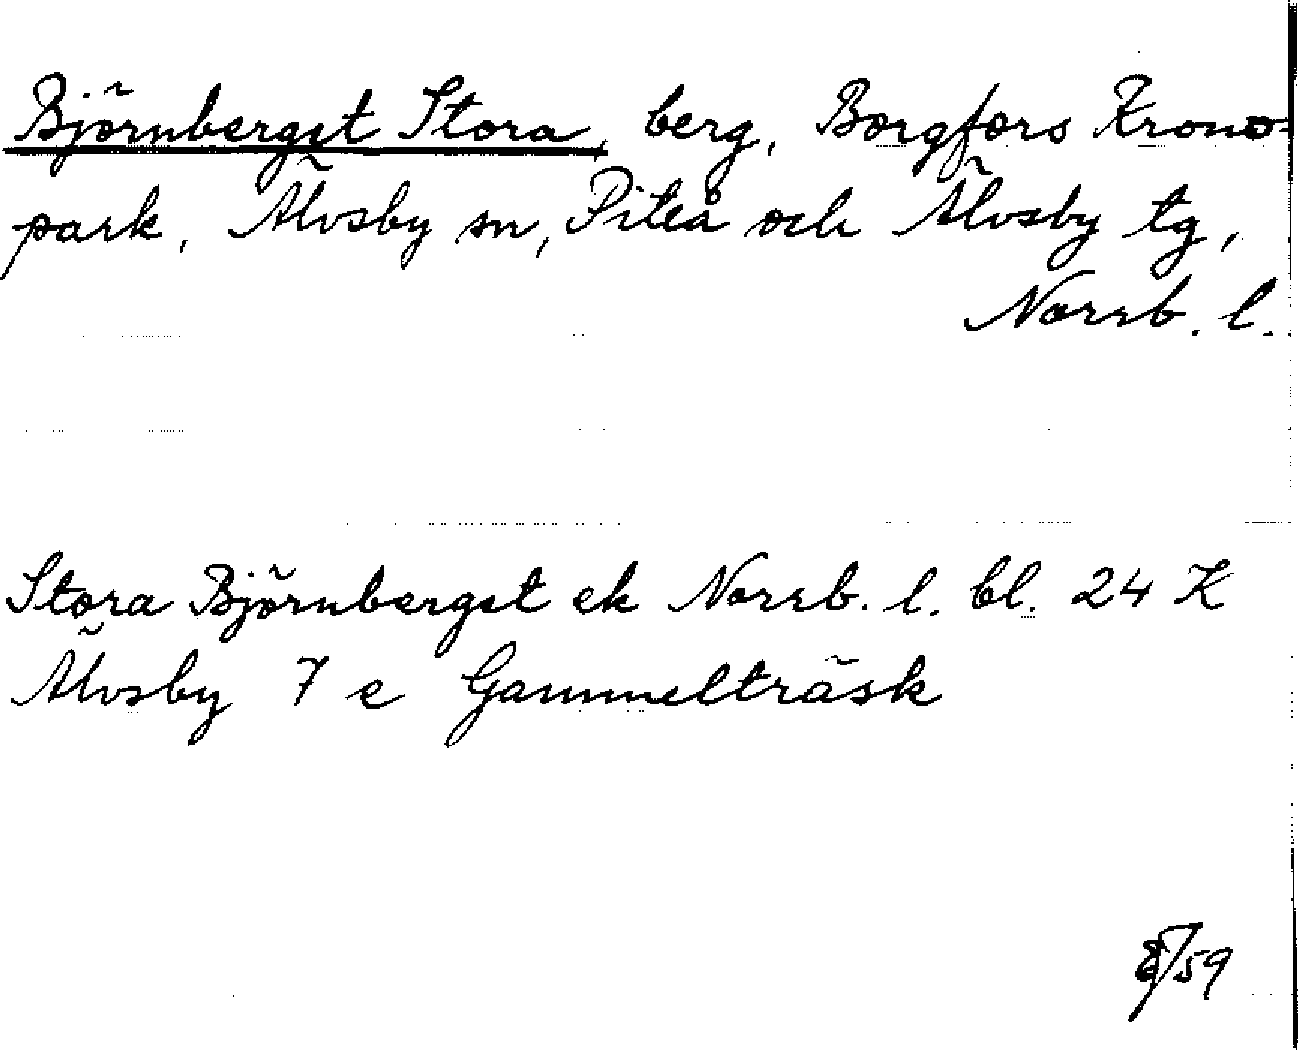 Björnberget Stora, berg, Borgfors Krono-
park, Älvsby sn, Piteå och Älvsby tg,
Norrb. l.
Stora Björnberget ek Norrb. l. bl. 24 K
Älvsby 7 e Gammelträsk
59